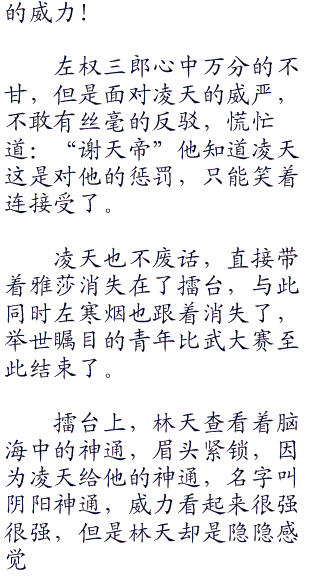 的威力！
左权三郎心中万分的不
甘，但是面对凌天的威严，
不敢有丝毫的反驳，慌忙
道：“谢天帝”他知道凌天
这是对他的惩罚，只能笑着
连接受了。
凌天也不废话，直接带
着雅莎消失在了擂台，与此
同时左寒烟也跟着消失了，
举世瞩目的青年比武大赛至
此结束了。
擂台上，林天查看着脑
海中的神通，眉头紧锁，因
为凌天给他的神通，名字叫
阴阳神通，威力看起来很强
很强，但是林天却是隐隐感
觉